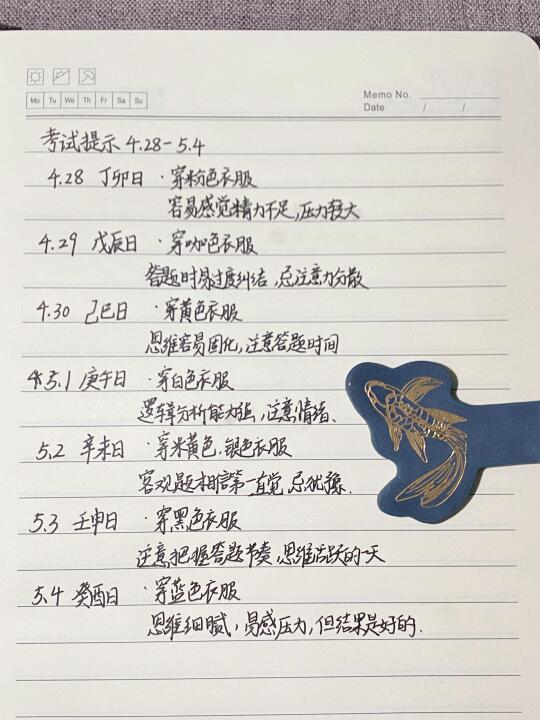 Mo Tu We Th Fr Sa Su
Memo No.
Date / /
考试提示 4.28-5.4
4.28 丁卯日 · 穿粉色衣服
容易感觉精力不足,压力较大
4.29 戊辰日 · 穿咖色衣服
答题时易过度纠结,忌注意力分散
4.30 己巳日 · 穿黄色衣服
思维容易固化,注意答题时间
5.1 庚午日 · 穿白色衣服
逻辑分析能力强,注意情绪.
5.2 辛未日 · 穿米黄色.银色衣服
客观题相信第一直觉,忌犹豫.
5.3 壬申日 · 穿黑色衣服
注意把握答题节奏,思维活跃的一天
5.4 癸酉日 · 穿蓝色衣服
思维细腻,易感压力,但结果是好的.